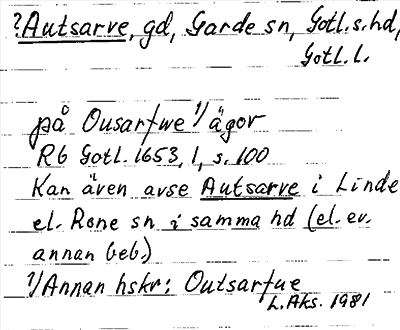 ?Autsarve, gd, Garde sn, Gotl. s. hd,
Gotl. l.
på Ousarfwe 1/ ägor
Rb Gotl. 1653, 1, s. 100
Kan även avse Autsarve i Linde
el. Rone sn i samma hd (el. ev.
annan beb.)
1/ Annan hskr: Outsarfue
L. Aks. 1981